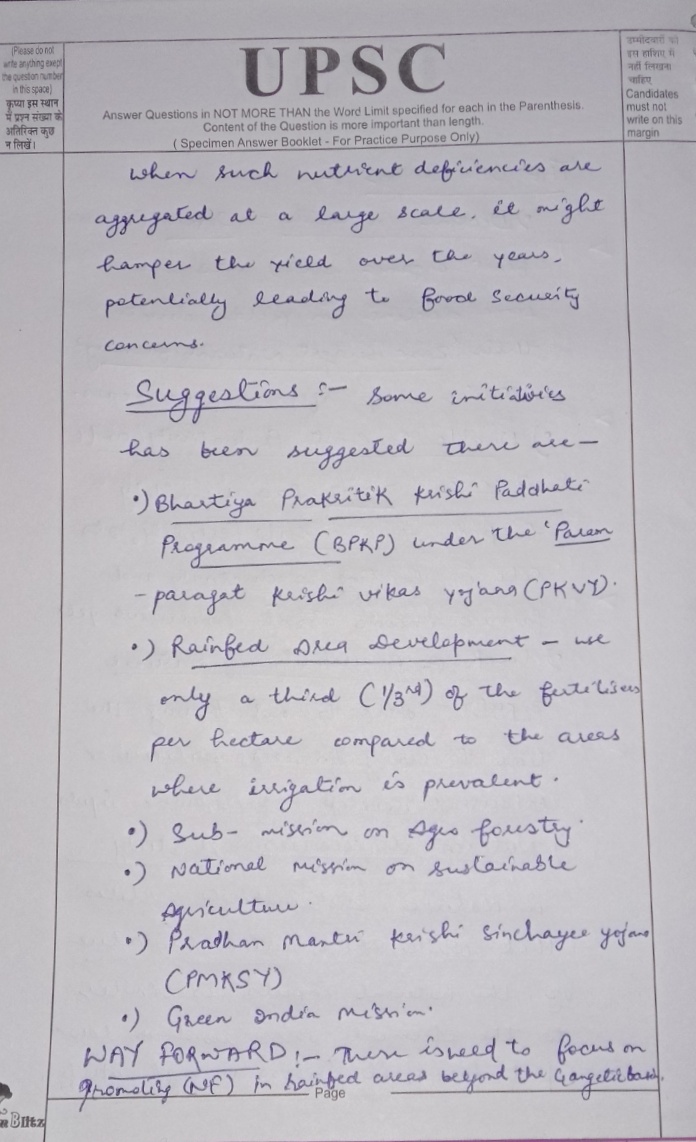 (Please do not
write anything exept
the question number
in this space)
कृप्या इस स्थान
में प्रश्न संख्या के
अतिरिक्त कुछ
न लिखें।
UPSC
Answer Questions in NOT MORE THAN the Word Limit specified for each in the Parenthesis.
Content of the Question is more important than length.
( Specimen Answer Booklet - For Practice Purpose Only)
उम्मीदवारों को
इस हाशिए में
नहीं लिखना
चाहिए
Candidates
must not
write on this
margin
when such nutrient deficiencies are
aggregated at a large scale, it might
hamper the yield over the years,
potentially leading to food security
concerns.
Suggestions :- Some initiativies
has been suggested there are -
•) Bhartiya Prakritik Krishi Paddhati
Programme (BPKP) under the 'Param
-paragat Krishi vikas yojana (PKVY).
•) Rainfed Area Development - use
only a third (1/3rd) of the fertilisers
per hectare compared to the areas
where irrigation is prevalent.
•) Sub-mission on Agro forestry.
•) National Mission on Sustainable
Agriculture.
•) Pradhan Mantri Krishi Sinchayee yojana
(PMKSY)
•) Green India Mission.
WAY FORWARD :- There is need to focus on
promoting (NF) in rainfed areas beyond the Gangetic basin.
Page
Blitz